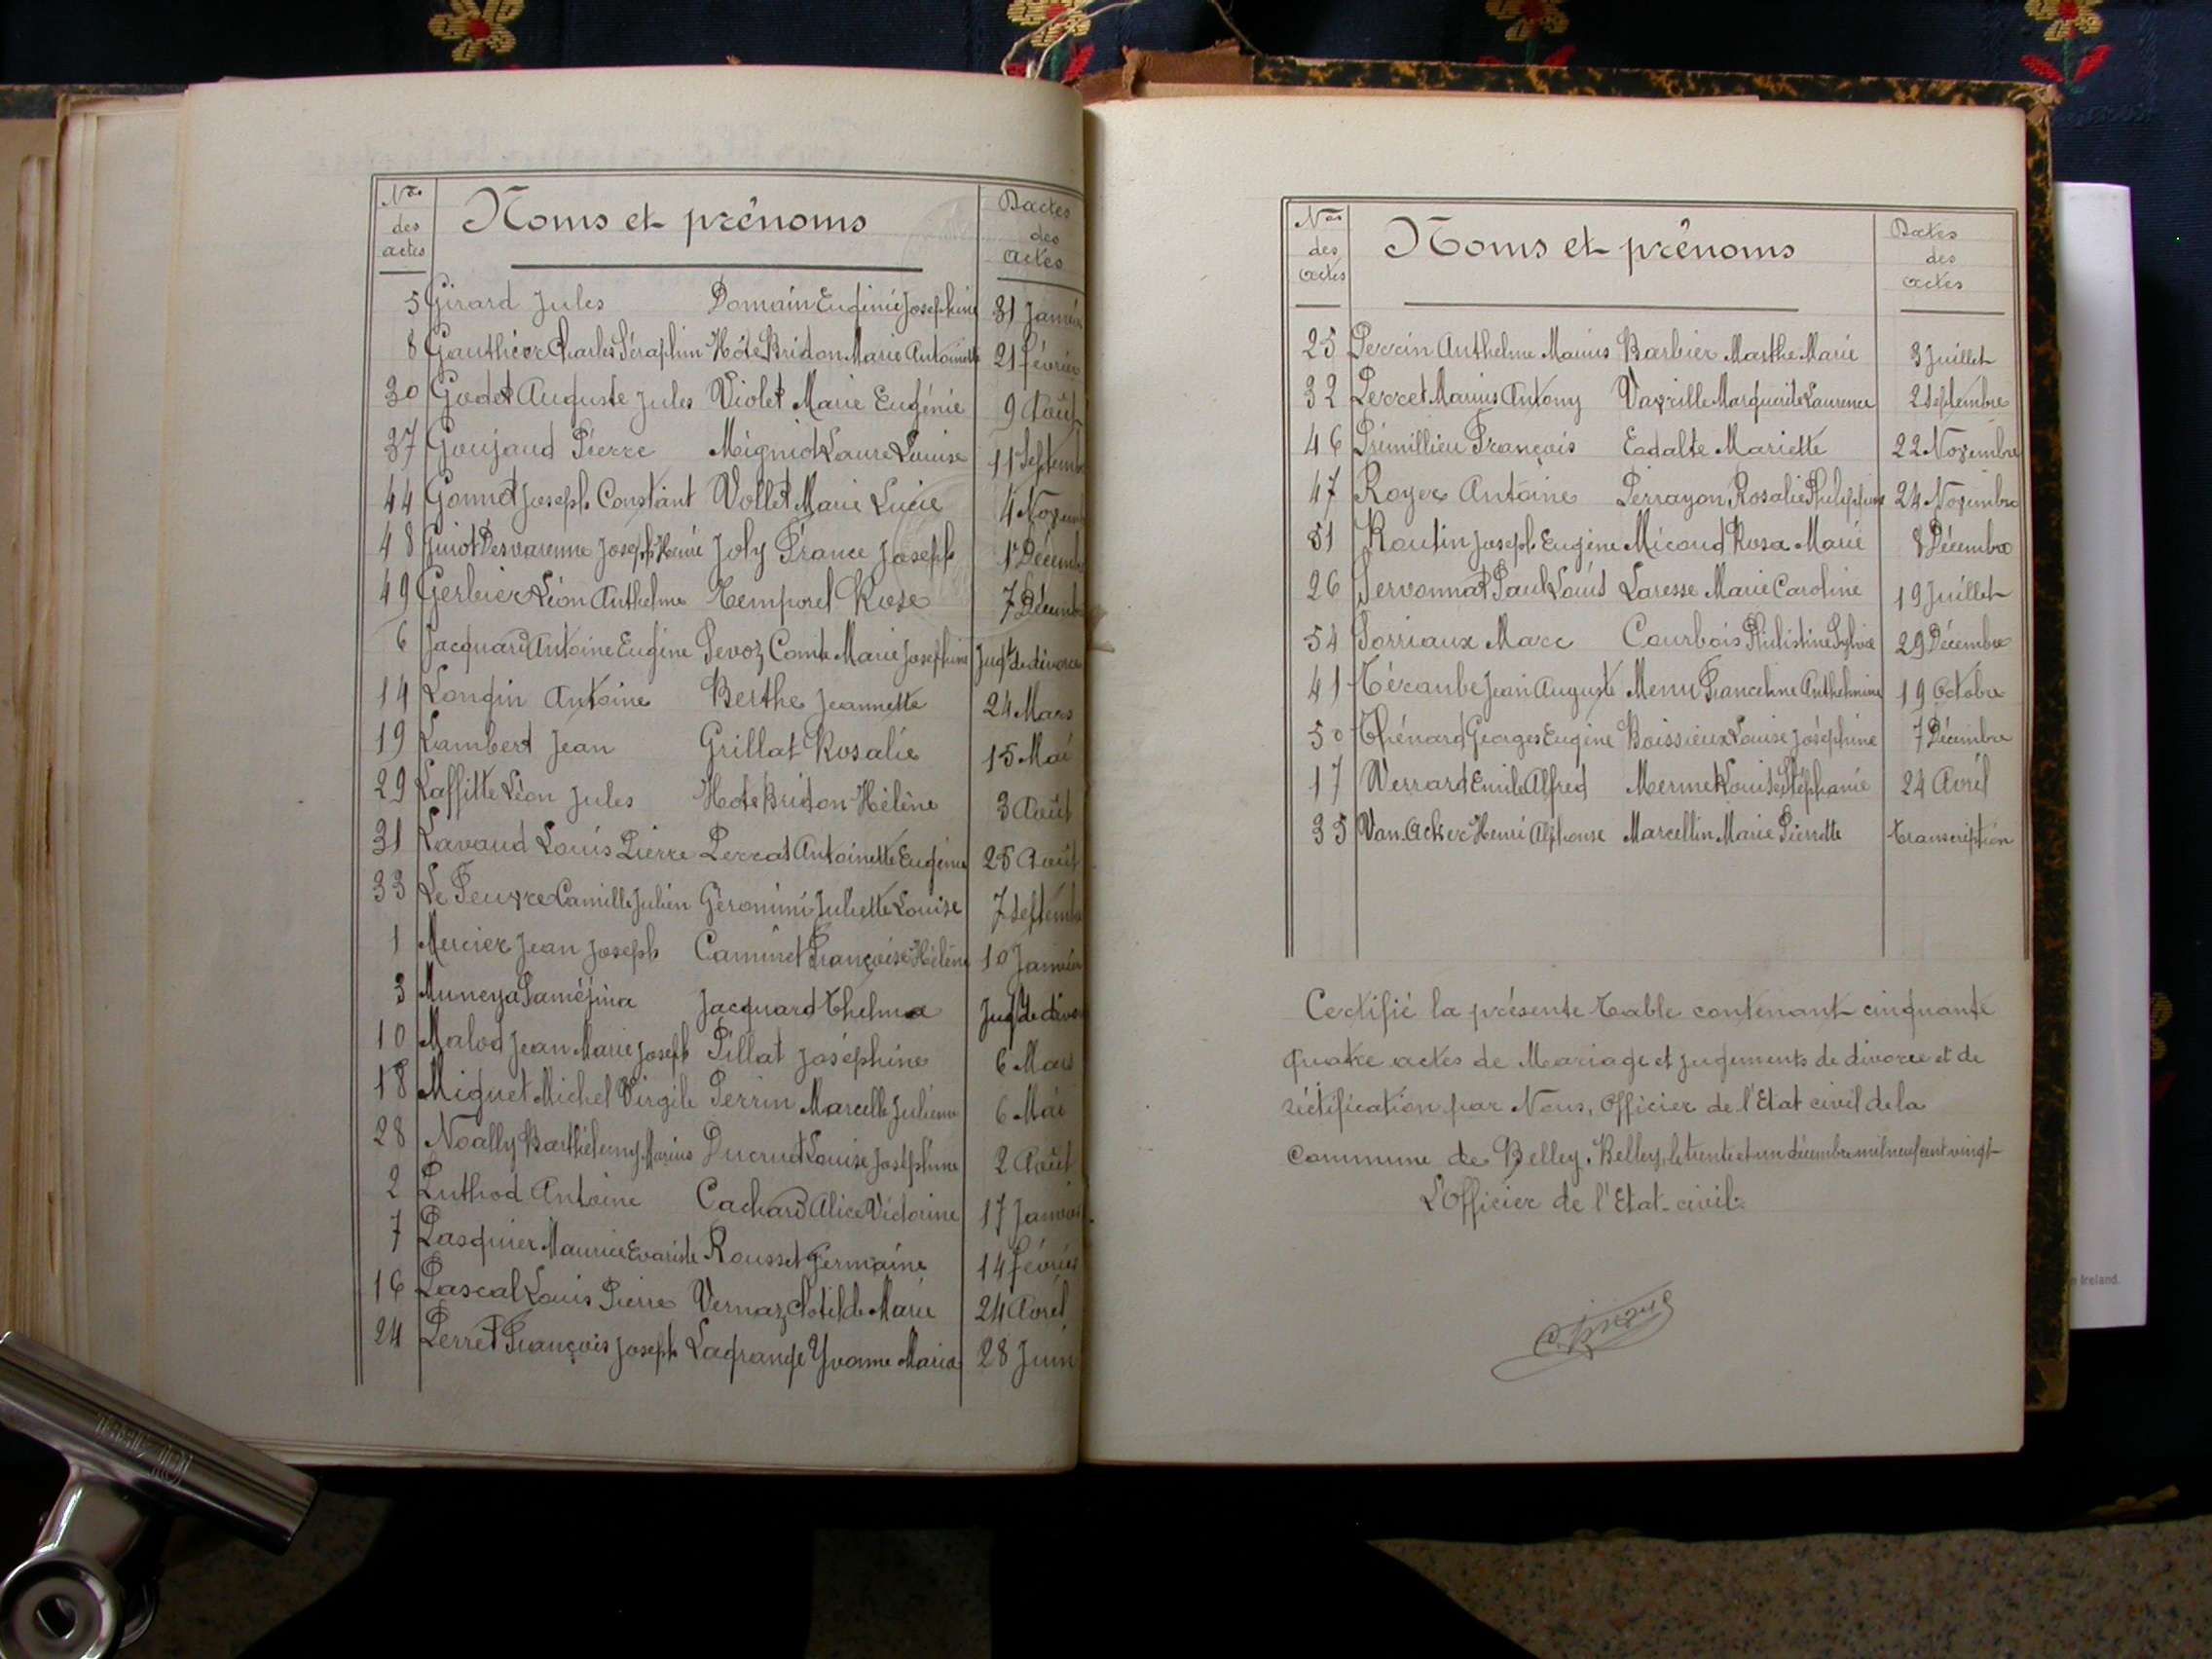 Nos des actes Noms et prénoms Dates des actes
5 Girard Jules Domain Eugénie Joséphine 31 Janvier
8 Gauthier Charles Séraphin Hôte Bridon Marie Antoinette 21 février
30 Godet Auguste Jules Violet Marie Eugénie 9 Août
37 Goujaud Pierre Mignot Laure Louise 11 Septemb
44 Gonnet Joseph Constant Vollet Marie Lucie 4 Novemb
48 Guiot Desvarenne Joseph Henri Joly France Joseph 1r Décemb
49 Gerbier Léon Anthelme Temporel Rose 7 Décemb
6 Jacquard Antoine Eugène Pevoz Comte Marie Joséphine Jugt de divorce
14 Longin Antoine Berthe Jeannette 24 Mars
19 Lambert Jean Grillat Rosalie 15 Mai
29 Laffitte Léon Jules Hote Bridon Hélène 3 Août
31 Lavaud Louis Pierre Perrat Antoinette Eugénie 25 Août
33 Le Peuvre Camille Julien Géronimi Juliette Louise 7 Septemb
1 Mercier Jean Joseph Caminet Françoise Hélène 10 Janvier
3 Jacquard Thelma Jugt de divor
10 Malod Jean Marie Joseph Pillat Joséphine 6 Mars
18 Miguet Michel Virgile Perrin Marcelle Julienne 6 Mai
28 Noally Barthélemy Marius Ducrud Louise Joséphine 2 Août
2 Puthod Antoine Cachard Alice Victorine 17 Janvier
7 Pasquier Maurice Evariste Rousset Germaine 14 février
16 Pascal Louis Pierre Vernaz Clotilde Marie 24 Avril
24 Perret François Joseph Lagrange Yvonne Maria 28 Juin
Nos des actes Noms et prénoms Dates des actes
25 Perrin Anthelme Marius Barbier Marthe Marie 3 Juillet
32 Perret Marius Antony Vavrille Marguerite Laurence 2 Septembre
46 Prémillieu François Eadalte Mariette 22 Novembre
47 Royer Antoine Perrayon Rosalie Philiphine 24 Novembre
51 Routin Joseph Eugène Micoud Rosa Marie 8 Décembre
26 Servonnat Paul Louis Laresse Marie Caroline 19 Juillet
54 Sorriaux Marc Courbois Philistine Sylvie 29 Décembre
41 Téraube Jean Auguste Menu Franceline Anthelmine 19 Octobre
50 Thénard Georges Eugène Boissieux Louise Joséphine 7 Décembre
17 Verrard Emile Alfred Mermet Louise Stéphanie 24 Avril
35 Van. Acker Henri Alphonse Marcellin Marie Pierrette transcription
Certifié la présente table contenant cinquante
quatre actes de Mariage et jugements de divorce et de
réctification par Nous, Officier de l'Etat civil de la
commune de Belley. Belley, le trente et un décembre mil neuf cent vingt
L'Officier de l'Etat-civil: